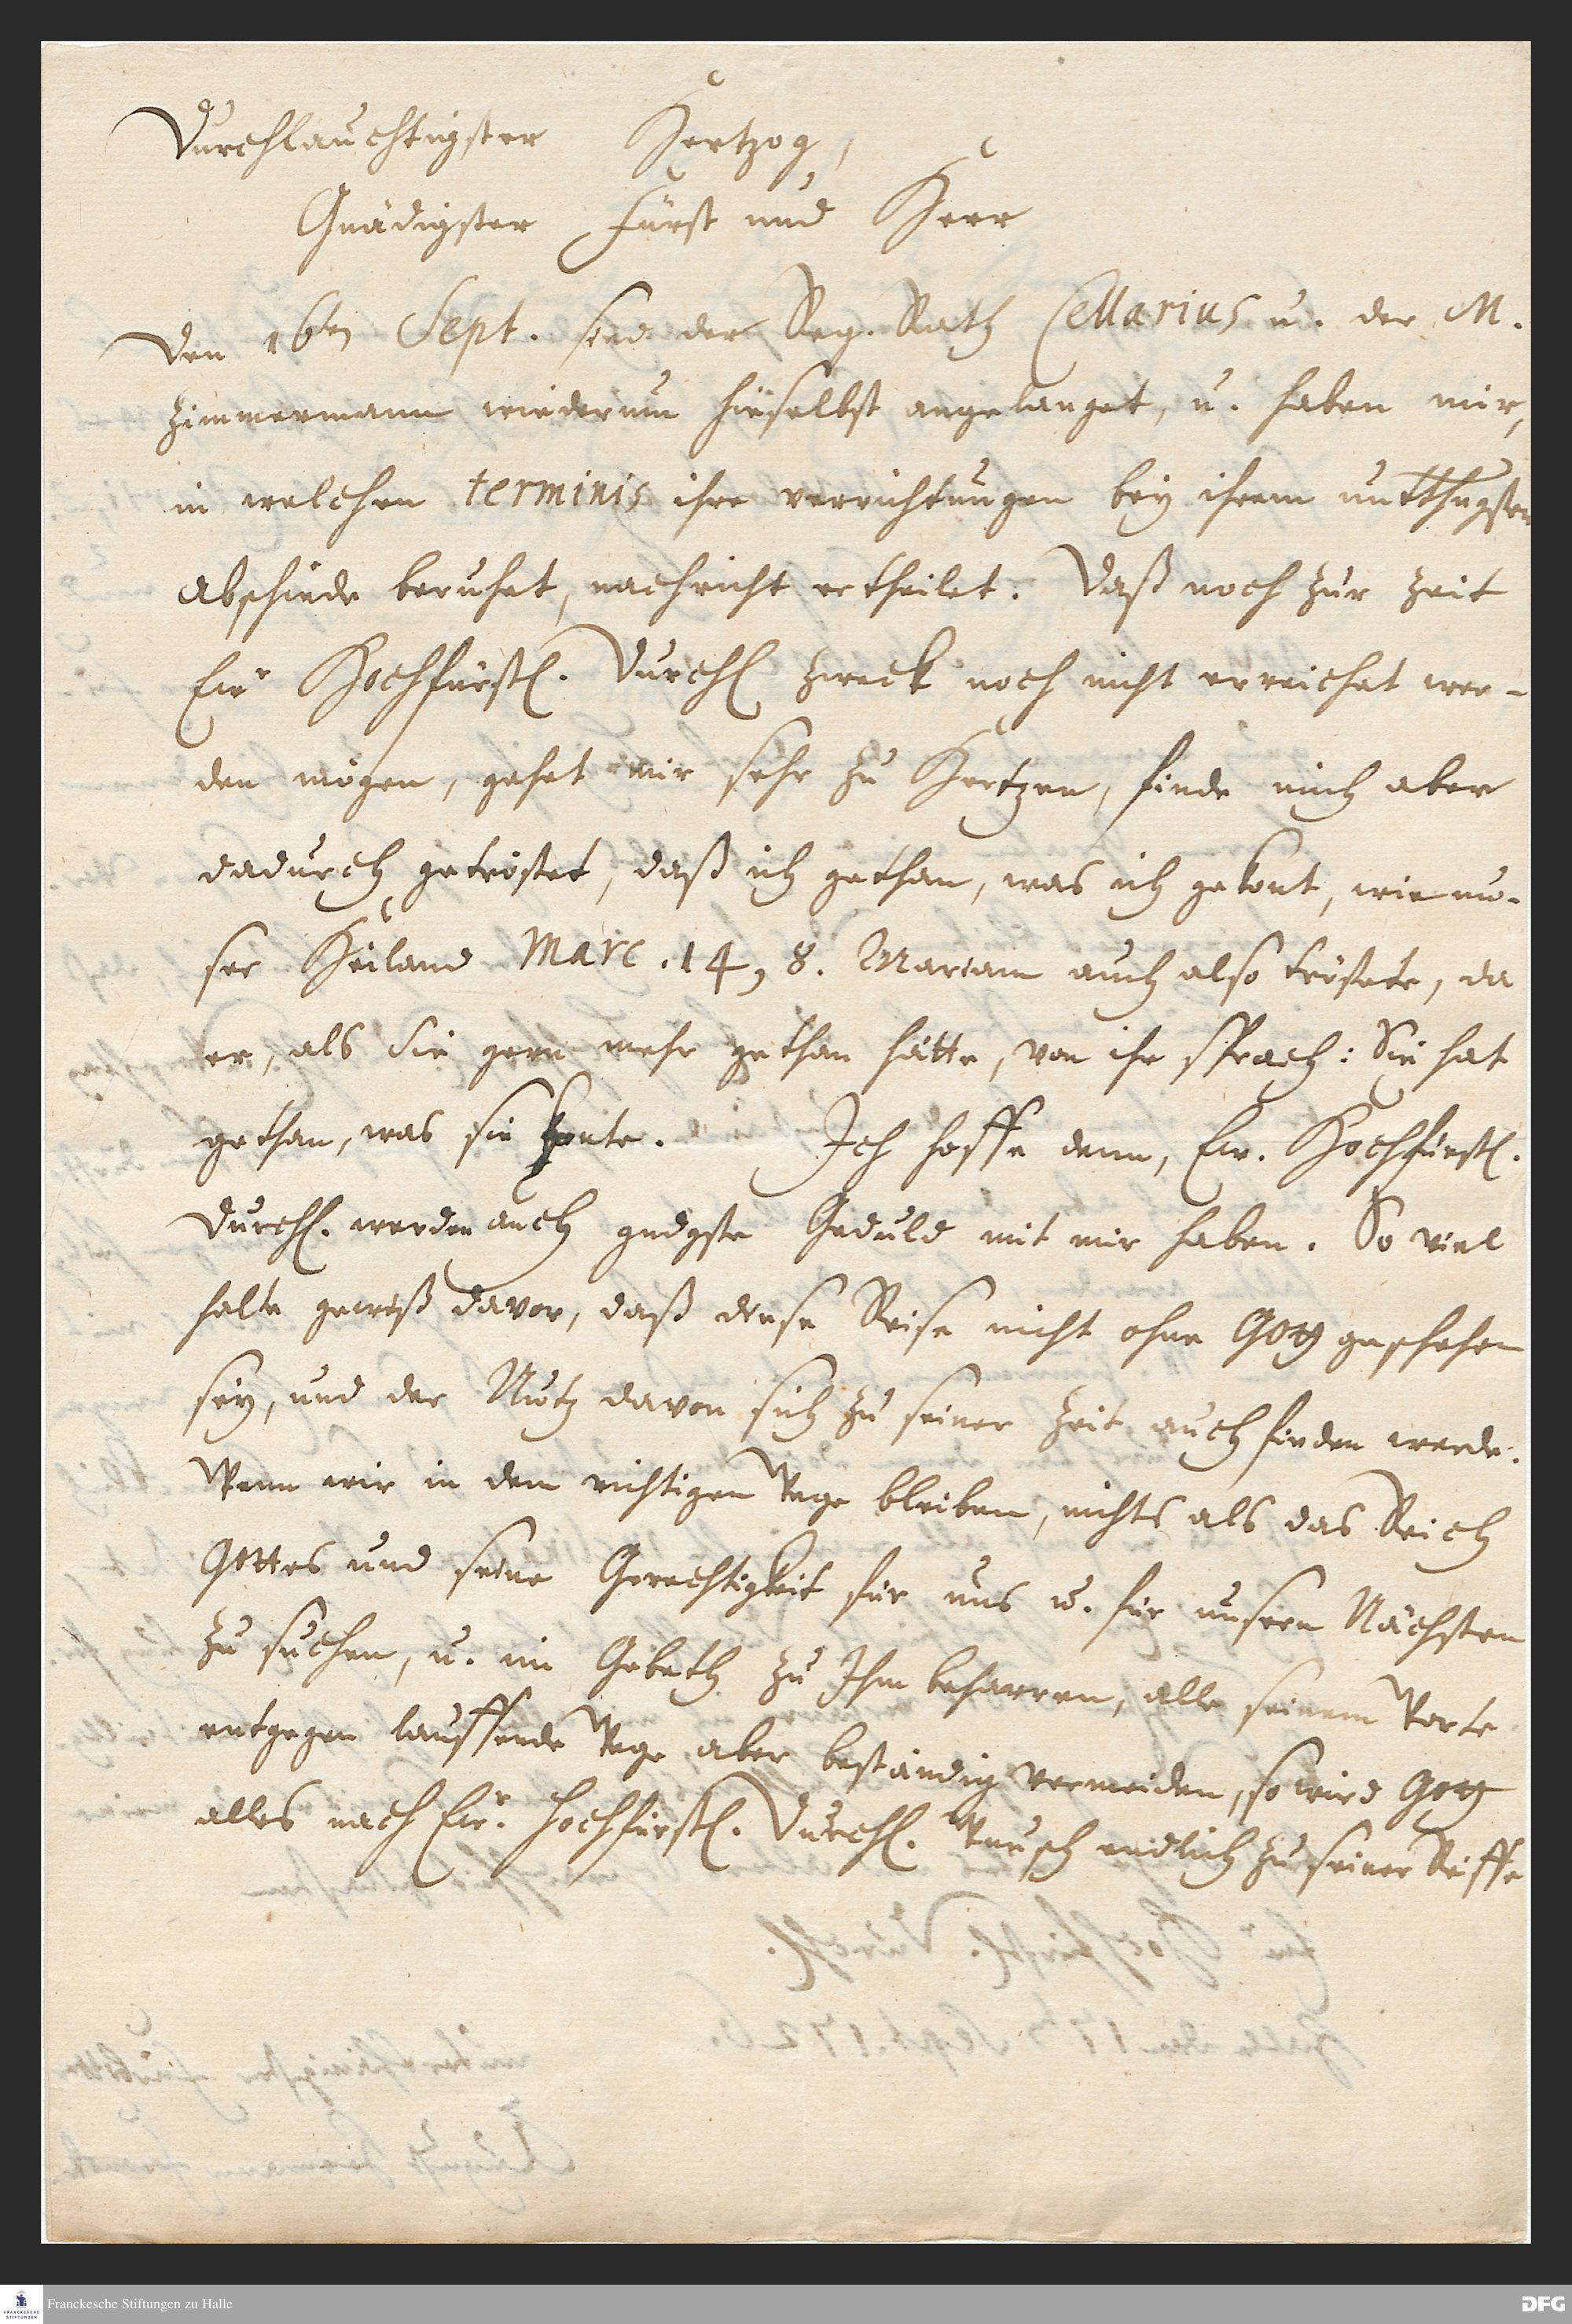 Durchlauchtigster Hertzog,
Gnädigster Fürst und Herr
Den 16ten Sept. sind der Reg. Rath Cellarius u. der M.
Zimmermann wiederum hieselbst angelanget, u. haben mir,
in welchen terminis ihre verrichtungen bey ihrem untthngsten
Abschiede beruhet, nachricht ertheilet. Daß noch zur Zeit
Ewr Hochfürstl. Durchl Zweck noch nicht erreichet wer-
den mögen, gehet mir sehr zu Hertzen, finde mich aber
dadurch getröstet, daß ich gethan, was ich gekont, wie un-
ser Heiland Marc. 14, 8. Mariam auch also tröstete, da
er, als sie gern mehr gethan hätte, von ihr sprach: Sie hat
gethan, was sie konte. Ich hoffe denn, Ew. Hochfürstl.
Durchl. werden auch gndgste Geduld mit mir haben. So viel
halte gewiß davor, daß diese Reise nicht ohne Gott geschehen
sey, und der Nutz davon sich zu seiner Zeit auch finden werde.
Wenn wir in dem richtigen Wege bleiben, nichts als das Reich
Gottes und seine Gerechtigkeit für uns u. für unsern Nächsten
zu suchen, u. im Gebeth zu Ihm beharren, alle seinem Worte
entgegen lauffende Wege aber beständig vermeiden, so wird Gott
alles nach Ewr. Hochfürstl. Durchl. Wunsch endlich zu seiner Reiffe
Franckesche Stiftungen zu Halle
FRANCKESCHE
STIFTUNGEN
DFG